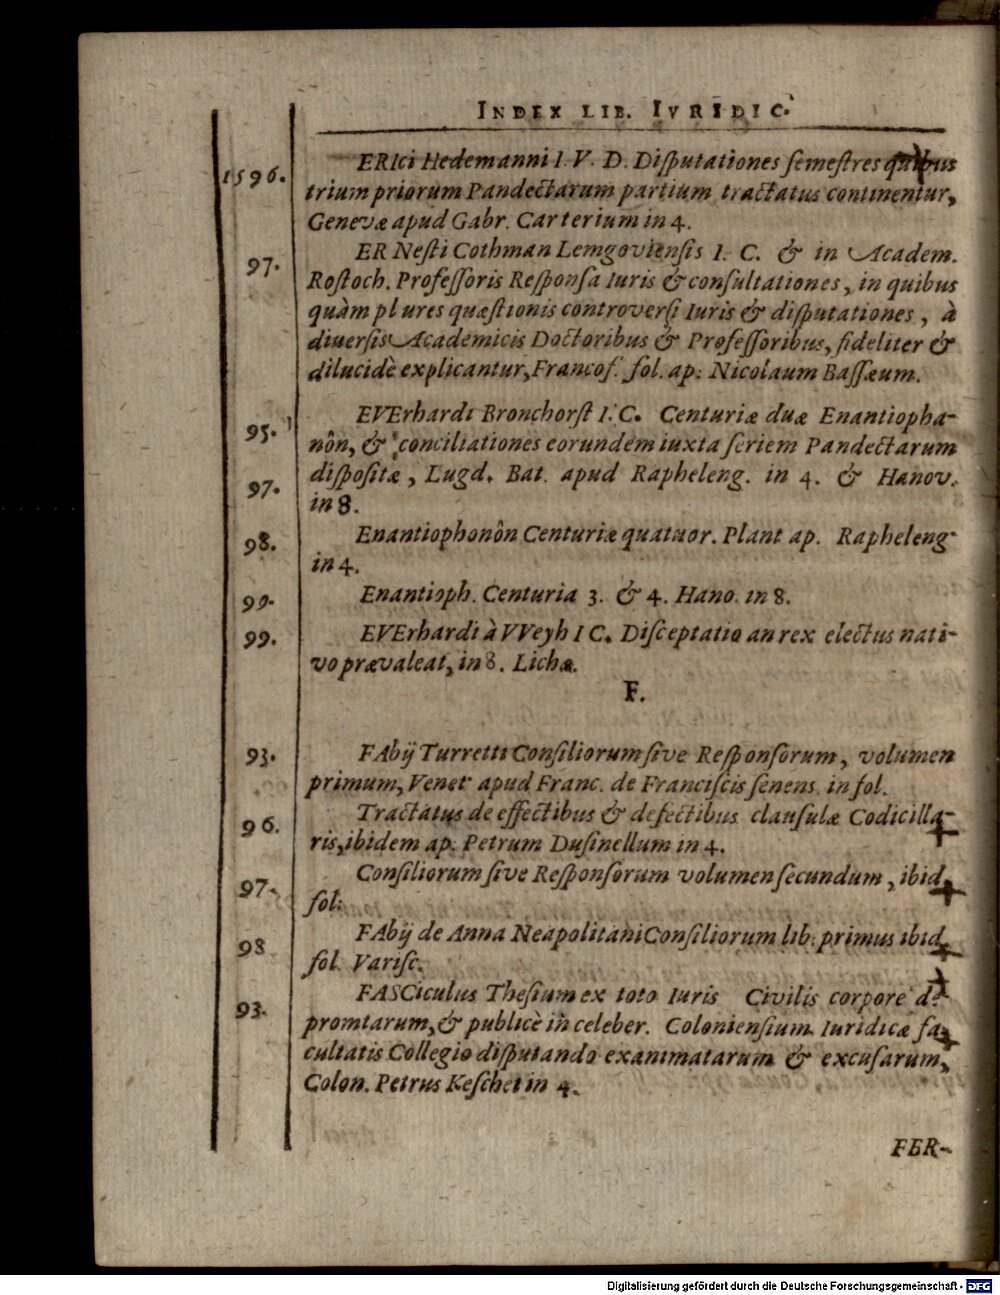 INDEX LIB. IVRIDIC.
1596. ERIci Hedemanni I. V. D. Disputationes semestres quibus
trium priorum Pandectarum partium tractatus continentur,
Genevæ apud Gabr. Carterium in 4.
97. ERNesti Cothman Lemgoviensis I. C. & in Academ.
Rostoch. Professoris Responsa Iuris & consultationes, in quibus
quàm plures quæstionis controversi Iuris & disputationes, à
diuersis Academicis Doctoribus & Professoribus, fideliter &
dilucidè explicantur, Francof. fol. ap. Nicolaum Bassæum.
95. EVErhardi Bronchorst I. C. Centuriæ duæ Enantiopha-
nôn, & conciliationes eorundem iuxta seriem Pandectarum
97. dispositæ, Lugd. Bat. apud Rapheleng. in 4. & Hanov.
in 8.
98. Enantiophonôn Centuriæ quatuor. Plant ap. Rapheleng
in 4.
99. Enantioph. Centuria 3. & 4. Hano. in 8.
99. EVErhardi à VVeyh I C. Disceptatio an rex electus nati-
vo prævaleat, in 8. Lichæ.
F.
93. FAbij Turretti Consiliorum sive Responsorum, volumen
primum, Venet apud Franc. de Franciscis senens. in fol.
96. Tractatus de effectibus & defectibus clausulæ Codicilla-
ris, ibidem ap. Petrum Dusinellum in 4.
97. Consiliorum sive Responsorum volumen secundum, ibid.
fol.
98 FAbij de Anna Neapolitani Consiliorum lib. primus ibid.
fol. Varisc.
93. FASCiculus Thesium ex toto Iuris Civilis corpore de-
promtarum, & publicè in celeber. Coloniensium Iuridicæ fa-
cultatis Collegio disputando examinatarum & excusarum,
Colon. Petrus Keschet in 4.
FER-
Digitalisierung gefördert durch die Deutsche Forschungsgemeinschaft - DFG